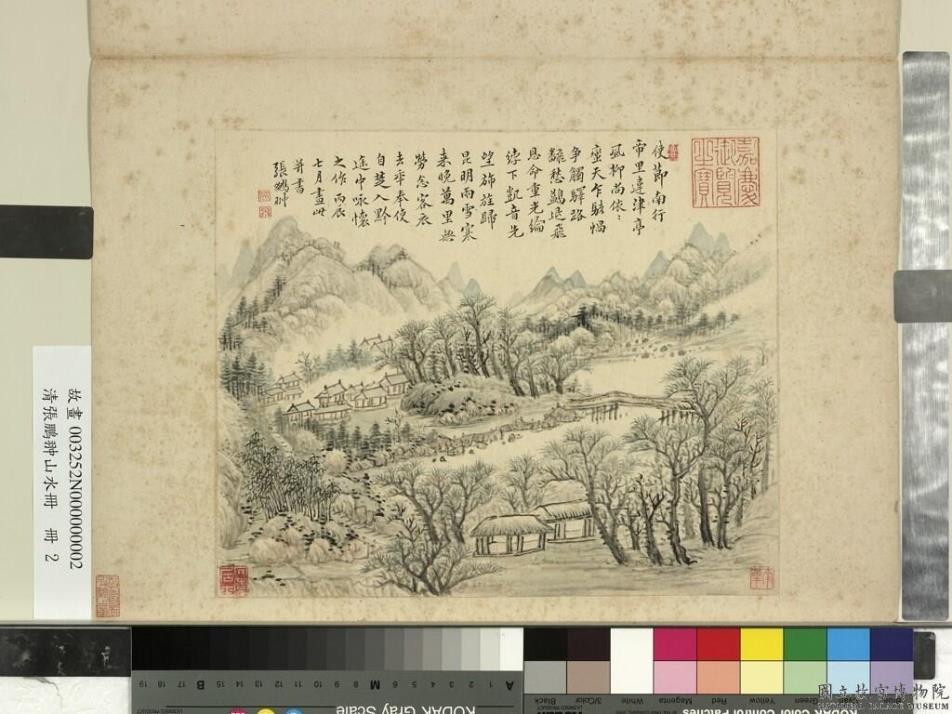 使節南行
帝里違津亭
風柳尚依〻
塵天乍駭
爭觸驛路
愁鷁退飛
恩命重光綸
綍下凱音先
望旆旌歸
昆明雨雪寒
来晚萬里無
勞念客衣
去年奉使
自楚入黔
途中咏懷
之作丙辰
七月畫此
并書
張鵬翀
嘉慶
御覽
之寶
故畫 003252N000000002
清張鵬翀山水冊 冊 2
國立故宮博物院
NATIONAL PALACE MUSEUM
KODAK Gray Scale
KODAK Color Control Patches
A 1 2 3 4 5 6 M 8 9 10 11 12 13 14 15 B 17 18 19
Black
3/Color
White
Magenta
Red
Yellow
Green
Cyan
Blue